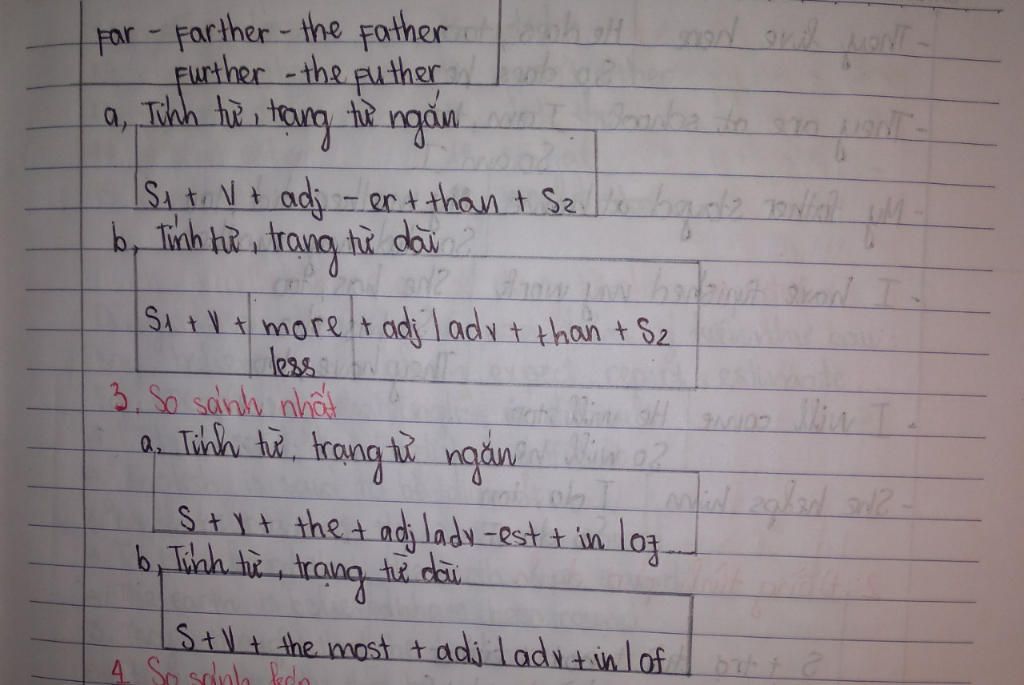 Far - Farther - the Father
Further - the futher
a, Tính từ, trạng từ ngắn
S1 + V + adj - er + than + S2
b, Tính từ, trạng từ dài
S1 + V + more + adj / adv + than + S2
less
3. So sánh nhất
a, Tính từ, trạng từ ngắn
S + V + the + adj / adv - est + in / of ...
b, Tính từ, trạng từ dài
S + V + the most + adj / adv + in / of
4. So sánh